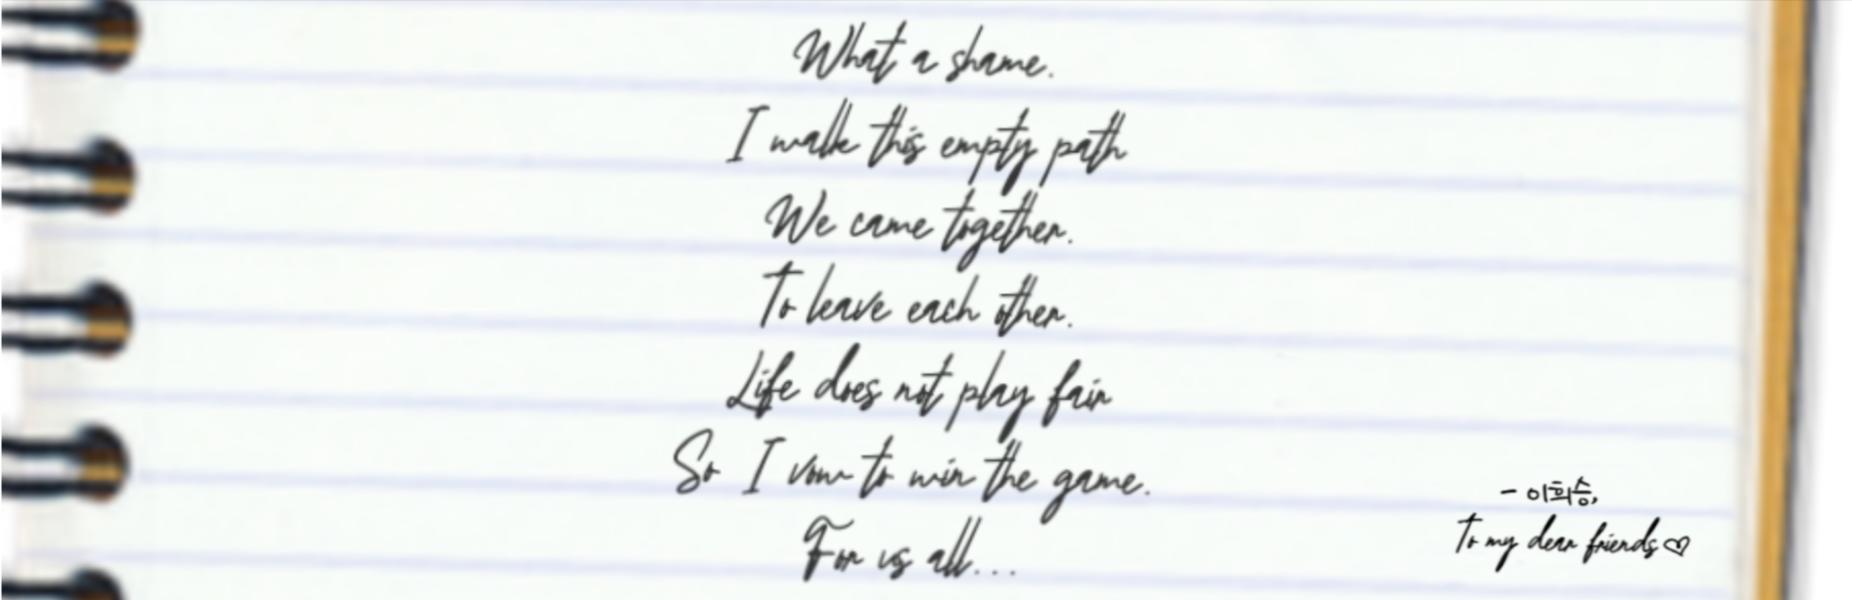 What a shame.
I walk this empty path
We came together.
To leave each other.
Life does not play fair
So I vow to win the game.
For us all...
- 이희승,
To my dear friends♡